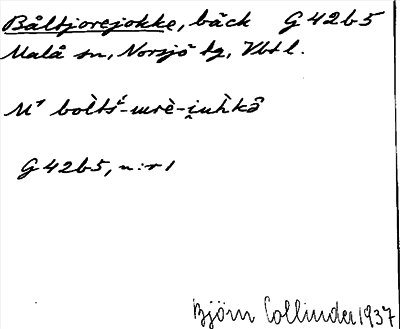 Båltjorejokke, bäck G 42 b 5
Malå sn, Norsjö tg, Vbtl.
G 42 b 5, n:r 1
Björn Collinder 1937